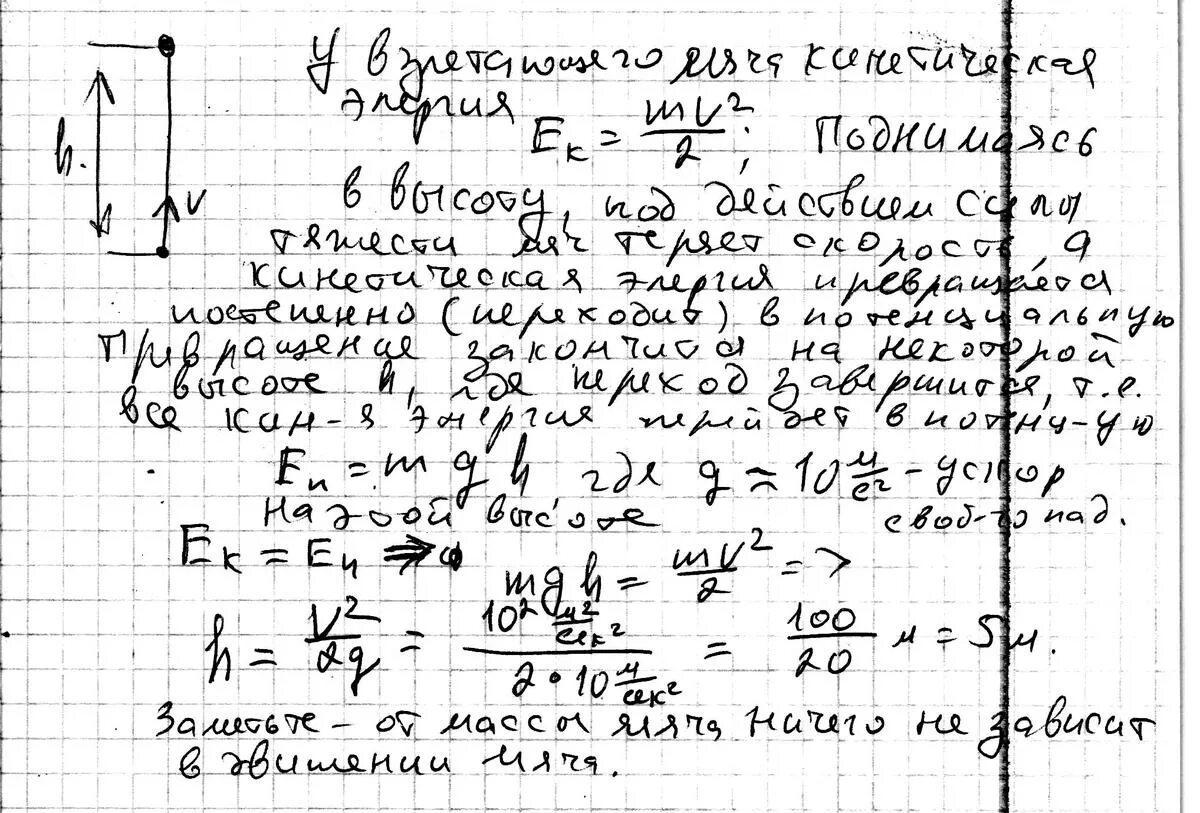 У взлетающего мяча кинетическая
энергия
Eк = mv²/2; Поднимаясь
h.
v
в высоту, под действием силы
тяжести мяч теряет скорость, а
кинетическая энергия превращается
постепенно (переходит) в потенциальную
Превращение закончится на некоторой
высоте h, где переход завершится, т.е.
все кин-я энергия перейдет в потенц-ую
Eп = m g h, где g ≈ 10 м/с² - ускор
на этой высоте свob-го пад.
Eк = Eп ⇒
mgh = mv²/2 =>
h = V²/2g = 10² м²/сек² / 2 • 10 м/сек² = 100/20 м = 5 м.
Заметьте - от массы мяча ничего не зависит
в движении мяча.